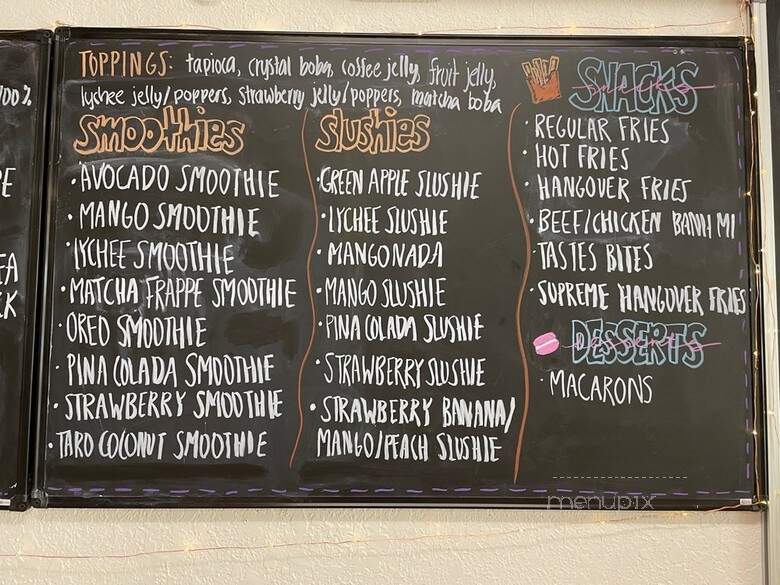 TOPPINGS: tapioca, crystal boba, coffee jelly, fruit jelly,
lychee jelly/poppers, strawberry jelly/poppers, matcha boba
smoothies
• AVOCADO SMOOTHIE
• MANGO SMOOTHIE
• LYCHEE SMOOTHIE
• MATCHA FRAPPE SMOOTHIE
• OREO SMOOTHIE
• PINA COLADA SMOOTHIE
• STRAWBERRY SMOOTHIE
• TARO COCONUT SMOOTHIE
slushies
• GREEN APPLE SLUSHIE
• LYCHEE SLUSHIE
• MANGONADA
• MANGO SLUSHIE
• PINA COLADA SLUSHIE
• STRAWBERRY SLUSHIE
• STRAWBERRY BANANA/
MANGO/PEACH SLUSHIE
SNACKS
• REGULAR FRIES
• HOT FRIES
• HANGOVER FRIES
• BEEF/CHICKEN BANH MI
• TASTES BITES
• SUPREME HANGOVER FRIES
DESSERTS
• MACARONS
100%
menupix